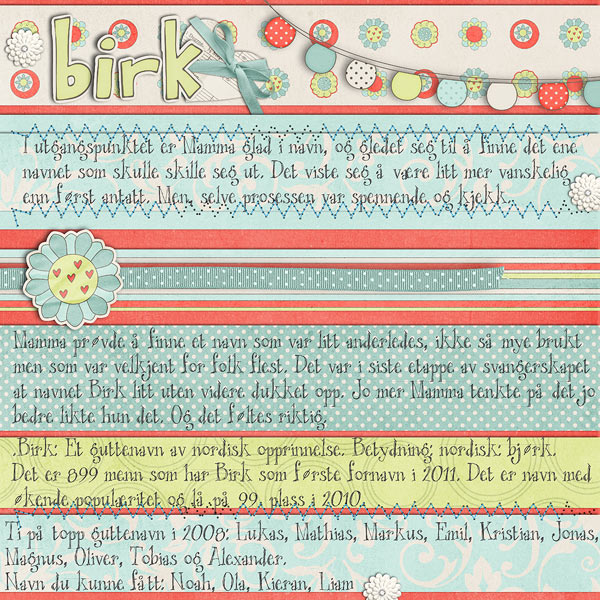 birk
I utgangspunktet er Mamma glad i navn, og gledet seg til å finne det ene
navnet som skulle skille seg ut. Det viste seg å være litt mer vanskelig
enn først antatt. Men, selve prosessen var spennende og kjekk.
Mamma prøvde å finne et navn som var litt anderledes, ikke så mye brukt
men som var velkjent for folk flest. Det var i siste etappe av svangerskapet
at navnet Birk litt uten videre dukket opp. Jo mer Mamma tenkte på det jo
bedre likte hun det. Og det føltes riktig.
Birk: Et guttenavn av nordisk opprinnelse. Betydning: nordisk: bjørk.
Det er 899 menn som har Birk som første fornavn i 2011. Det er navn med
økende popularitet og lå på 99. plass i 2010.
Ti på topp guttenavn i 2008: Lukas, Mathias, Markus, Emil, Kristian, Jonas,
Magnus, Oliver, Tobias og Alexander.
Navn du kunne fått: Noah, Ola, Kieran, Liam